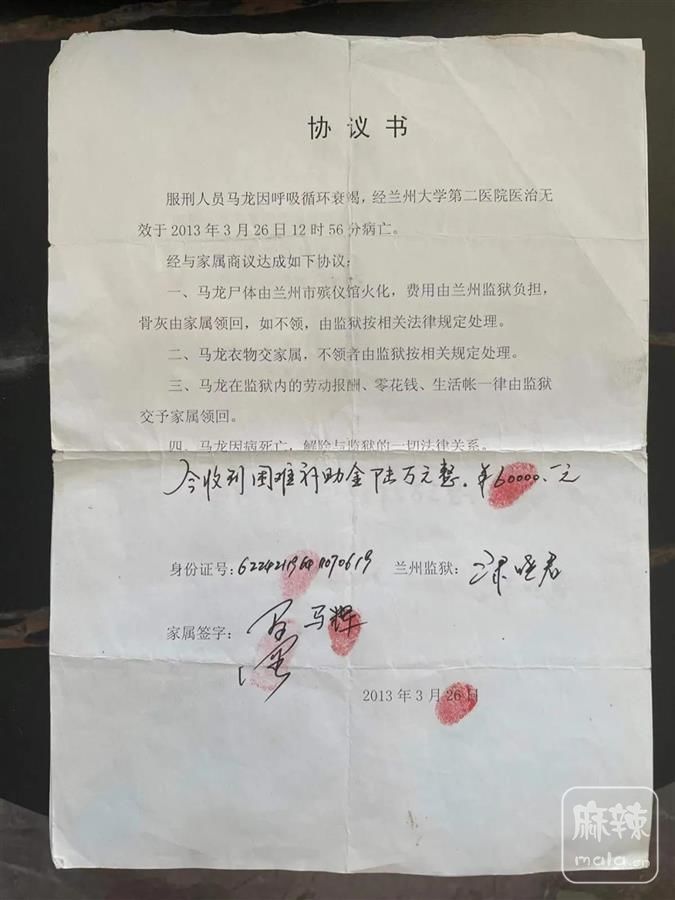 协议书
服刑人员马龙因呼吸循环衰竭，经兰州大学第二医院医治无
效于2013年3月26日12时56分病亡。
经与家属商议达成如下协议：
一、马龙尸体由兰州市殡仪馆火化，费用由兰州监狱负担，
骨灰由家属领回，如不领，由监狱按相关法律规定处理。
二、马龙衣物交家属，不领者由监狱按相关规定处理。
三、马龙在监狱内的劳动报酬、零花钱、生活帐一律由监狱
交予家属领回。
四、马龙因病死亡，解除与监狱的一切法律关系。
今收到困难补助金陆万元整。¥60000.一元
身份证号： 兰州监狱：
家属签字： 马辉
2013年3月26日
麻辣
mala.cn